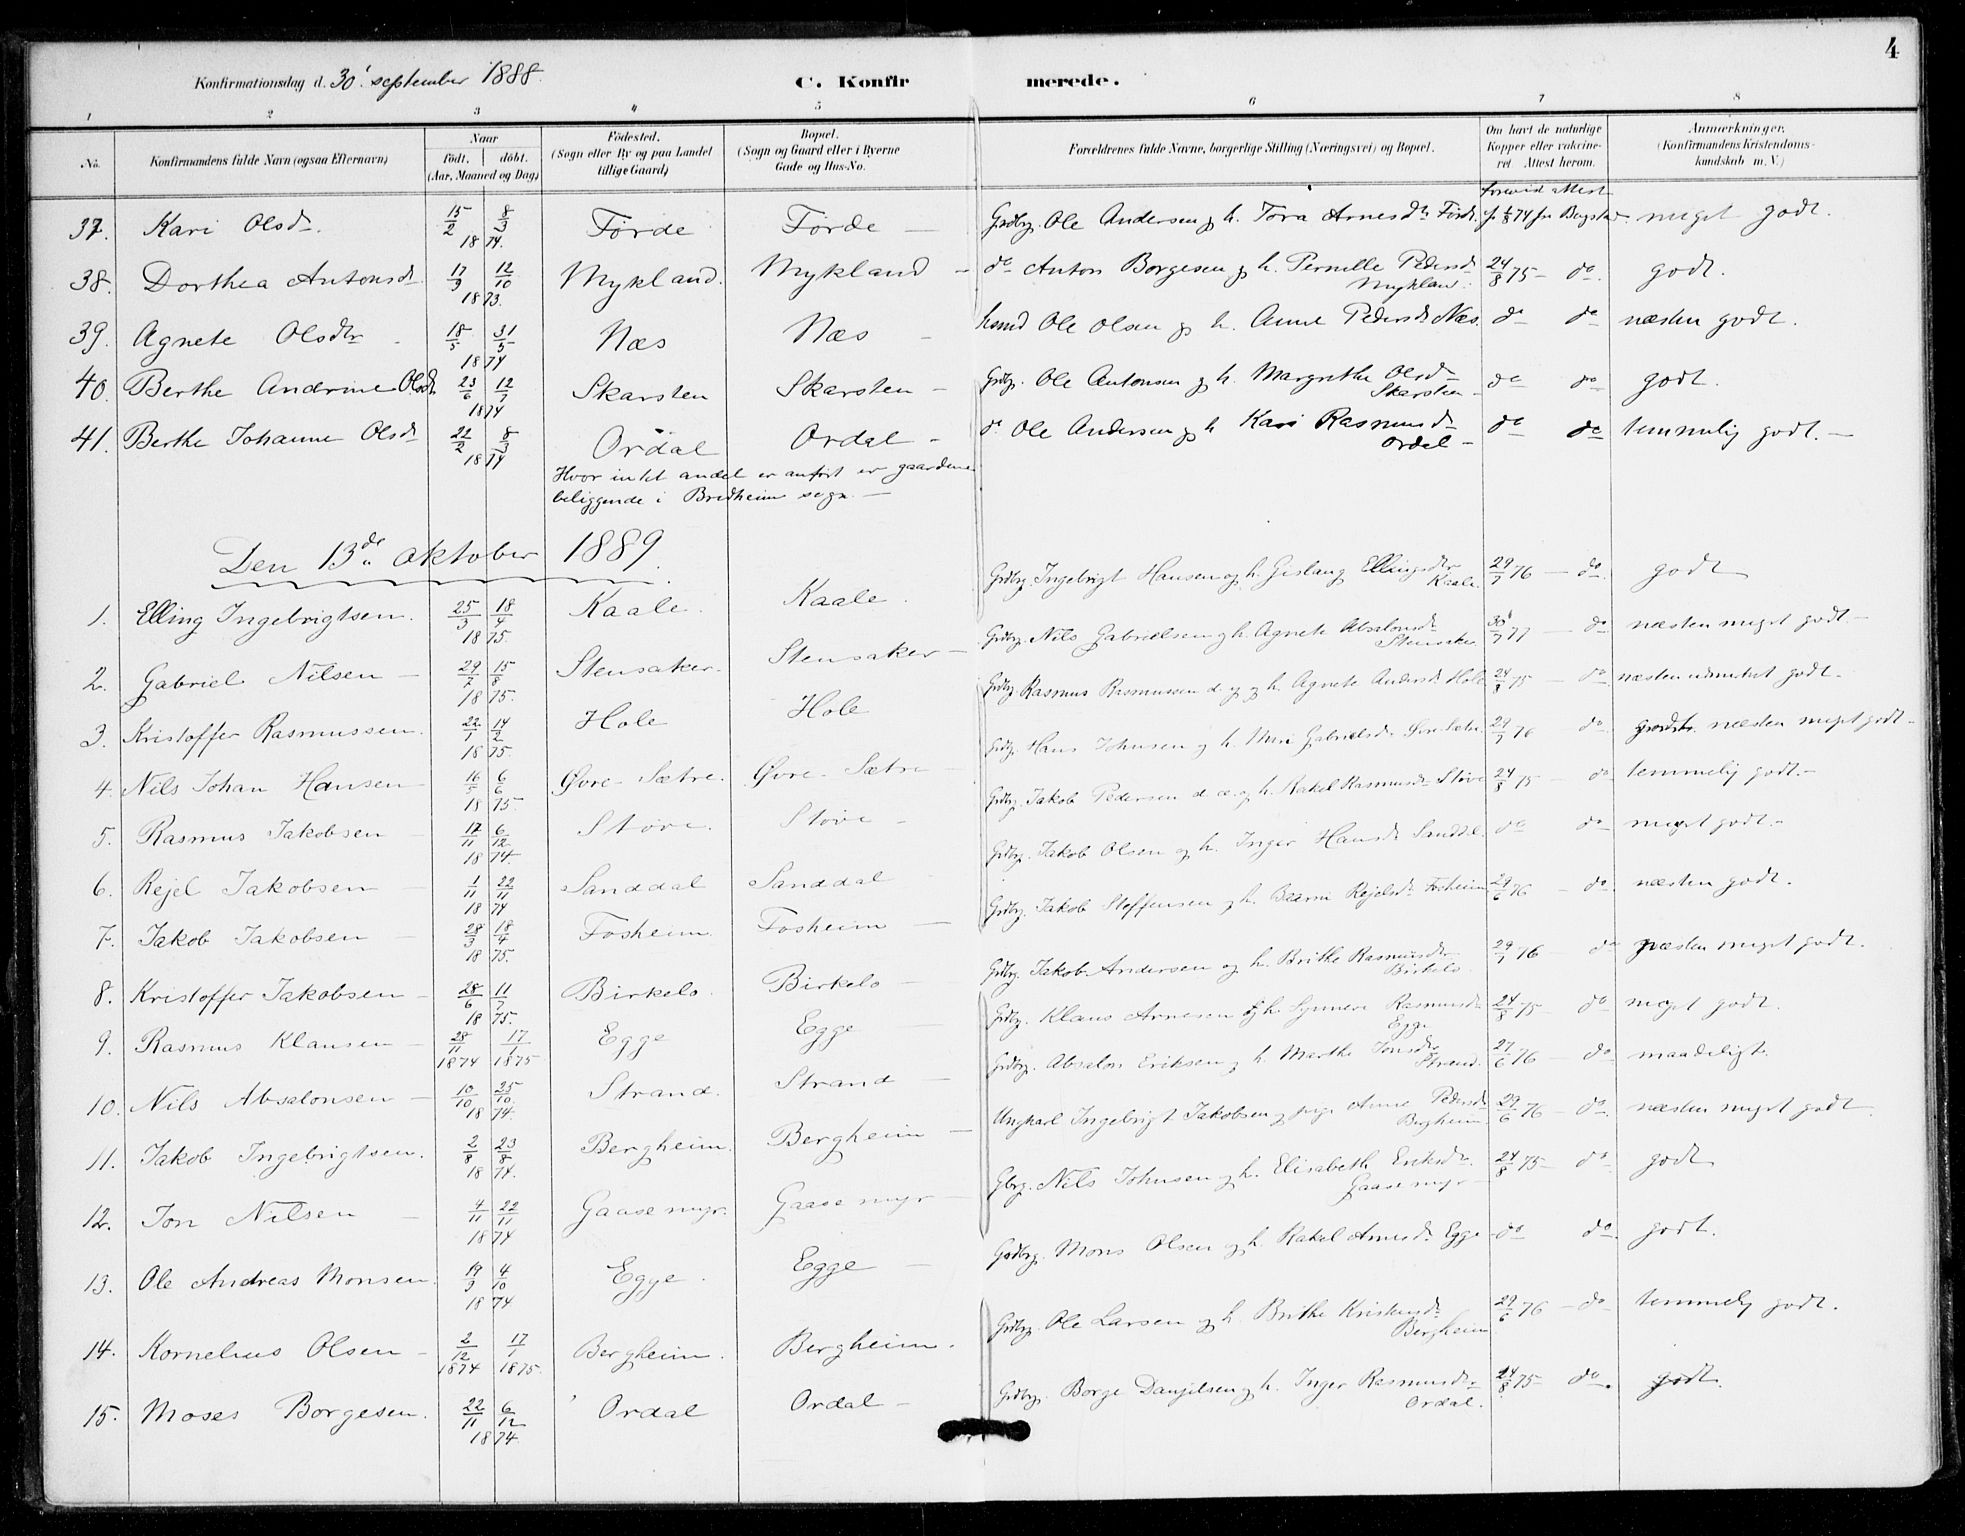 4
Konfirmationsdag d. 30' september 1888. C. Konfirmerede.
1 2 3 4 5 6 7 8
No. Konfirmandens fulde Navn (ogsaa Efternavn) Naar født. døbt. (Aar, Maaned og Dag) Fødested. (Sogn eller By og paa Landet tillige Gaard) Bopæl. (Sogn og Gaard eller i Byerne Gade og Hus-No. Forældrenes fulde Navne, borgerlige Stilling (Næringsvei) og Bopæl. Om havt de naturlige Kopper eller vakcineret. Attest herom. Anmærkninger. (Konfirmandens Kristendomskundskab m. V.)
37. Kari Olsdr. 15/2 8/3 1874. Førde Førde — Grdbrg. Ole Andersen og h. Tora Arnesdr Førde. meget godt.
38. Dorthea Antonsdr 17/9 12/10 1873. Mykland. Mykland — do Anton Borgesen og h. Pernille Pedersdr Mykland. 24/8 75 — do. godt.
39. Agnete Olsdtr 18/5 31/5 1874 Næs Næs — husmd Ole Olsen og h. Anne Pedersdr Næs. do do næsten godt.
40. Berthe Andrine Olsdr 23/6 12/7 1874 Skarsten Skarsten — Grdbrg. Ole Antonsen og h. Margrethe Olsdr Skarsten — do do godt.
41. Berthe Johanne Olsdr 22/2 8/3 1874 Ordal Ordal — do Ole Andersen og h Kari Rasmusdr Ordal — do do temmelig godt. —
Hvor intet andet er anført er gaardene
beliggende i Bredheim sogn. —
Den 13de oktober 1889.
1. Elling Ingebrigtsen. 25/3 18/4 1875. Kaale. Kaale. Grdbrg. Ingebrigt Hansen og h. Gislaug Ellingsdtr Kaale. 29/7 76 — do. godt
2. Gabriel Nilsen — 29/7 15/8 1875. Stensaker. Stensaker — Grdbrg. Nils Gabrielsen og h. Agnete Absalonsdr Stensaker. 30/7 77 — do næsten meget godt. —
3. Kristoffer Rasmussen. 22/1 14/2 1875. Hole Hole Grdbrg. Rasmus Rasmussen d. æ. og h. Agnete Andersdr Hole 24/8 75 — do næsten udmærket godt.
4. Nils Johan Hansen 16/5 6/6 1875. Øvre-Sætre. Øvre-Sætre — Grdbrg. Hans Johnsen og h. Gabrielsdr 29/7 76 do næsten meget godt —
5. Rasmus Jakobsen — 17/11 6/12 1874. Støve. Støve — Grdbrg. Jakob Pedersen d. æ. og h. Rakel Rasmusdr Støve 24/8 75 — do temmelig godt. —
6. Rejel Jakobsen — 1/11 22/11 1874 Sanddal Sanddal Grdbrg. Jakob Olsen og h. Inger Hansdr Sanddal do do meget godt. —
7. Jakob Jakobsen — 28/3 18/4 1875. Fosheim Fosheim — Grdbrg. Jakob Steffensen og h. Rejelsdr Fosheim 29/6 76 — do næsten godt.
8. Kristoffer Jakobsen — 28/6 11/7 1875. Birkelo. Birkelo — Grdbrg. Jakob Andersen og h. Brithe Rasmusdtr Birkelo. 29/7 76 do næsten meget godt.
9. Rasmus Klausen — 28/11 1874 17/1 1875 Egge Egge — Grdbrg. Klaus Arnesen og h. Synneve Rasmusdr Egge 24/8 75 — do meget godt.
10. Nils Absalonsen — 10/10 25/10 1874. Strand. Strand — Grdbrg. Absalon Eriksen og h. Marthe Jonsdtr Strand. 27/6 76 — do maadeligt.
11. Jakob Ingebrigtsen. 2/8 23/8 1874. Bergheim. Bergheim — Ungkarl Ingebrigt Jakobsen og pige Anne Pedersdr Bergheim. 29/6 76 — do næsten meget godt
12. Jon Nilsen — 4/11 22/11 1874 Gaasemyr. Gaasemyr — Gbrg. Nils Johnsen og h. Elisabeth Eriksdr. Gaasemyr — 24/8 75 — do godt
13. Ole Andreas Monsen. 19/9 4/10 1874 Egge. Egge — Grdbrg. Mons Olsen og h. Rakel Arnesdr Egge do do. godt.
14. Kornelius Olsen — 2/12 1874 17/1 1875. Bergheim. Bergheim. Grdbrg. Ole Larsen og h. Brithe Kristensdr Bergheim 29/6 76 — do temmelig godt.
15. Moses Borgesen. 22/11 6/12 1874. Ordal Ordal — Grdbrg. Borge Danjelsen og h. Inger Rasmusdtr Ordal. 24/8 75 — do. godt.